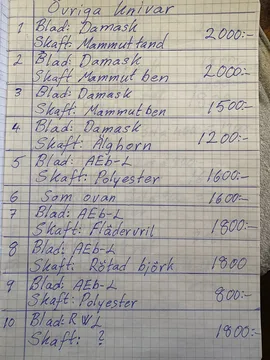 Övriga knivar
1 Blad: Damask
Skaft: Mammuttand 2000:-
2 Blad: Damask
Skaft Mammutben 2000:-
3 Blad: Damask
Skaft: Mammutben 1500:-
4 Blad: Damask
Skaft: Älghorn 1200:-
5 Blad: AEb-L
Skaft: Polyester 1600:-
6 Som ovan 1600:-
7 Blad: AEb-L
Skaft: Flädervril 1800:-
8 Blad: AEb-L
Skaft: Rötad björk 1800
9 Blad: AEb-L
Skaft: Polyester 800:-
10 Blad: RWL
Skaft: ? 1800:-